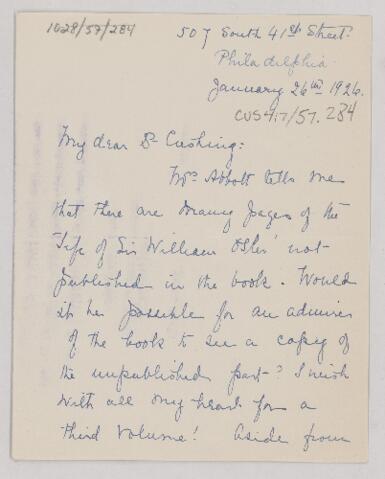 1028/57/284
507 South 41st Street.
Philadelphia
January 26th 1926.
CUS417/57.284
My dear Dr Cushing:
Mrs Abbott tells me
that there are many pages of the
"Life of Sir William Osler" not
published in the book. Would
it be possible for an admirer
of the book to see a copy of
the unpublished part? I wish
with all my heart for a
third volume! Aside from